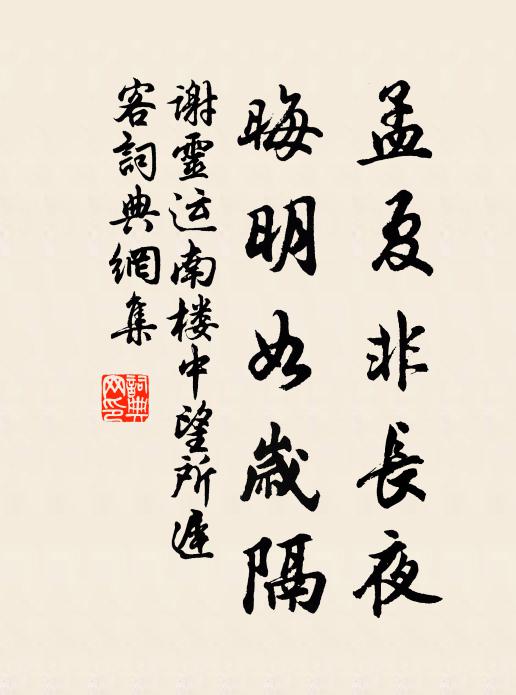 孟夏非長夜
晦明如歲隔
谢靈运南楼中望所遲
客詞典網集
詞典网印